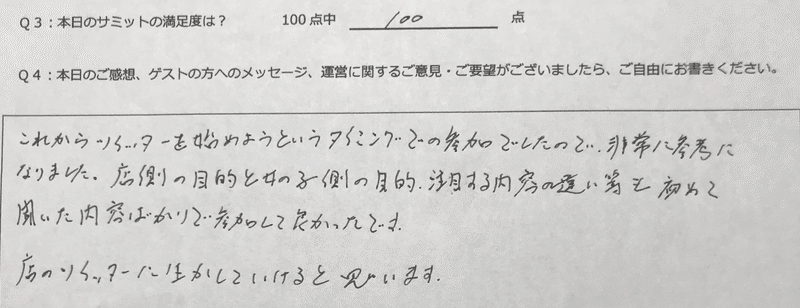 Q3：本日のサミットの満足度は？ 100点中 100 点
Q4：本日のご感想、ゲストの方へのメッセージ、運営に関するご意見・ご要望がございましたら、ご自由にお書きください。
これからツイッターを始めようというタイミングでの参加でしたので、非常に参考に
なりました。店側の目的と女の子側の目的、注目する内容の違い等も初めて
聞いた内容ばかりで参加して良かったです。
店のツイッターに生かしていけると思います。